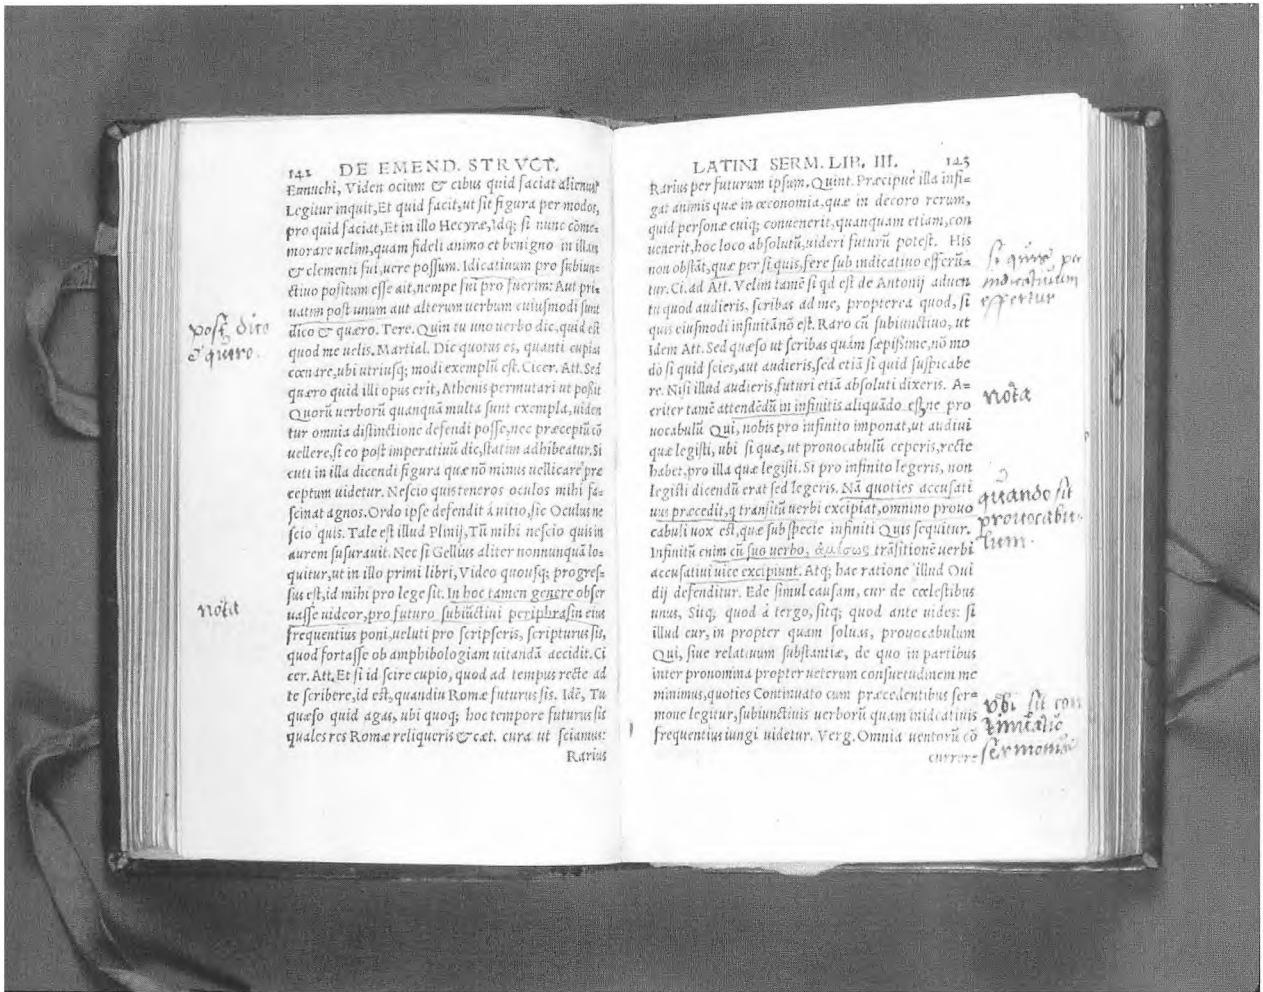 142 DE EMEND. STRVCT.
Eunuchi, Viden ocium & cibus quid faciat alienus?
Legitur inquit,Et quid facit,ut sit figura per modos,
pro quid faciat,Et in illo Hecyræ,Idq; si nunc cōme-
morare uelim,quam fideli animo et benigno in illam
& clementi fui,uere possum. Idicatiuum pro subiun-
ctiuo positum esse ait,nempe fui pro fuerim: Aut pri-
uatim post unum aut alterum uerbum cuiusmodi sunt
dico & quæro. Tere. Quin tu uno uerbo dic,quid est
quod me uelis. Martial. Dic quotus es, quanti cupias
cœnare,ubi utriusq; modi exemplū est. Cicer. Att. Sed
quæro quid illi opus erit, Athenis permutari ut possit
Quorū uerborū quanquā multa sunt exempla,uiden
tur omnia distinctione defendi posse,nec præceptū cō
uellere,si eo post imperatiuū dic,statim adhibeatur. Si
cuti in illa dicendi figura quæ nō minus uellicare præ
ceptum uidetur. Nescio quis teneros oculos mihi fa-
scinat agnos. Ordo ipse defendit à uitio,sic Oculus ne
scio quis. Tale est illud Plinij,Tū mihi nescio quis in
aurem susurauit. Nec si Gellius aliter nonnunquā lo-
quitur,ut in illo primi libri,Video quousq; progres-
sus est,id mihi pro lege sit. In hoc tamen genere obser
uasse uideor,pro futuro subiūctiui periphrasin eius
frequentius poni,ueluti pro scripseris, scripturus sis,
quod fortasse ob amphibologiam uitandā accidit. Ci
cer. Att. Et si id scire cupio, quod ad tempus recte ad
te scribere,id est,quandiu Romæ futurus sis. Idē, Tu
quæso quid agas, ubi quoq; hoc tempore futurus sis
quales res Romæ reliqueris &cæt. cura ut sciamus:
Rarius
post dico
& quero.
nota
LATINI SERM. LIB. III.
Rarius per futurum ipsum. Quint. Præcipuè illa infi-
gat animis quæ in œconomia,quæ in decoro rerum,
quid personæ cuiq; conuenerit,quanquam etiam,con
uenerit,hoc loco absolutū,uideri futurū potest. His
non obstāt,quæ per si quis,fere sub indicatiuo efferū-
tur. Ci. ad Att. Velim tamē si qd est de Antonij aduen
tu quod audieris, scribas ad me, propterea quod, si
quis eiusmodi infinitā nō est. Raro cū subiunctiuo, ut
Idem Att. Sed quæso ut scribas quàm sæpissime,nō mo
dò si quid scies,aut audieris,sed etiā si quid suspicabe
re. Nisi illud audieris,futuri etiā absoluti dixeris. A-
criter tamē attendēdū in infinitis aliquādo est,ne pro
uocabulū Qui, nobis pro infinito imponat,ut audiui
quæ legisti, ubi si quæ, ut prouocabulū ceperis,recte
habet,pro illa quæ legisti. Si pro infinito legeris, non
legisti dicendū erat sed legeris. Nā quoties accusati
uus præcedit,q transitū uerbi excipiat,omnino prouo
cabuli uox est,quæ sub specie infiniti Quis sequitur.
Infinitū enim cū suo uerbo, ἀμέσως trāsitionē uerbi
accusatiui uice excipiunt. Atq; hac ratione illud Oui
dij defenditur. Ede simul causam, cur de cœlestibus
unus, Sitq; quod à tergo,sitq; quod ante uides: si
illud cur, in propter quam soluas, prouocabulum
Qui, siue relatiuum substantiæ, de quo in partibus
inter pronomina propter ueterum consuetudinem me
minimus,quoties Continuato cum præcedentibus ser-
mone legitur,subiunctiuis uerborū quam inidcatiuis
frequentius iungi uidetur. Verg. Omnia uentorū cō
currere
si quis per
indicatiuum
effertur
nota
quando sit
prouocabu-
lum.
vbi sit con
sermonis